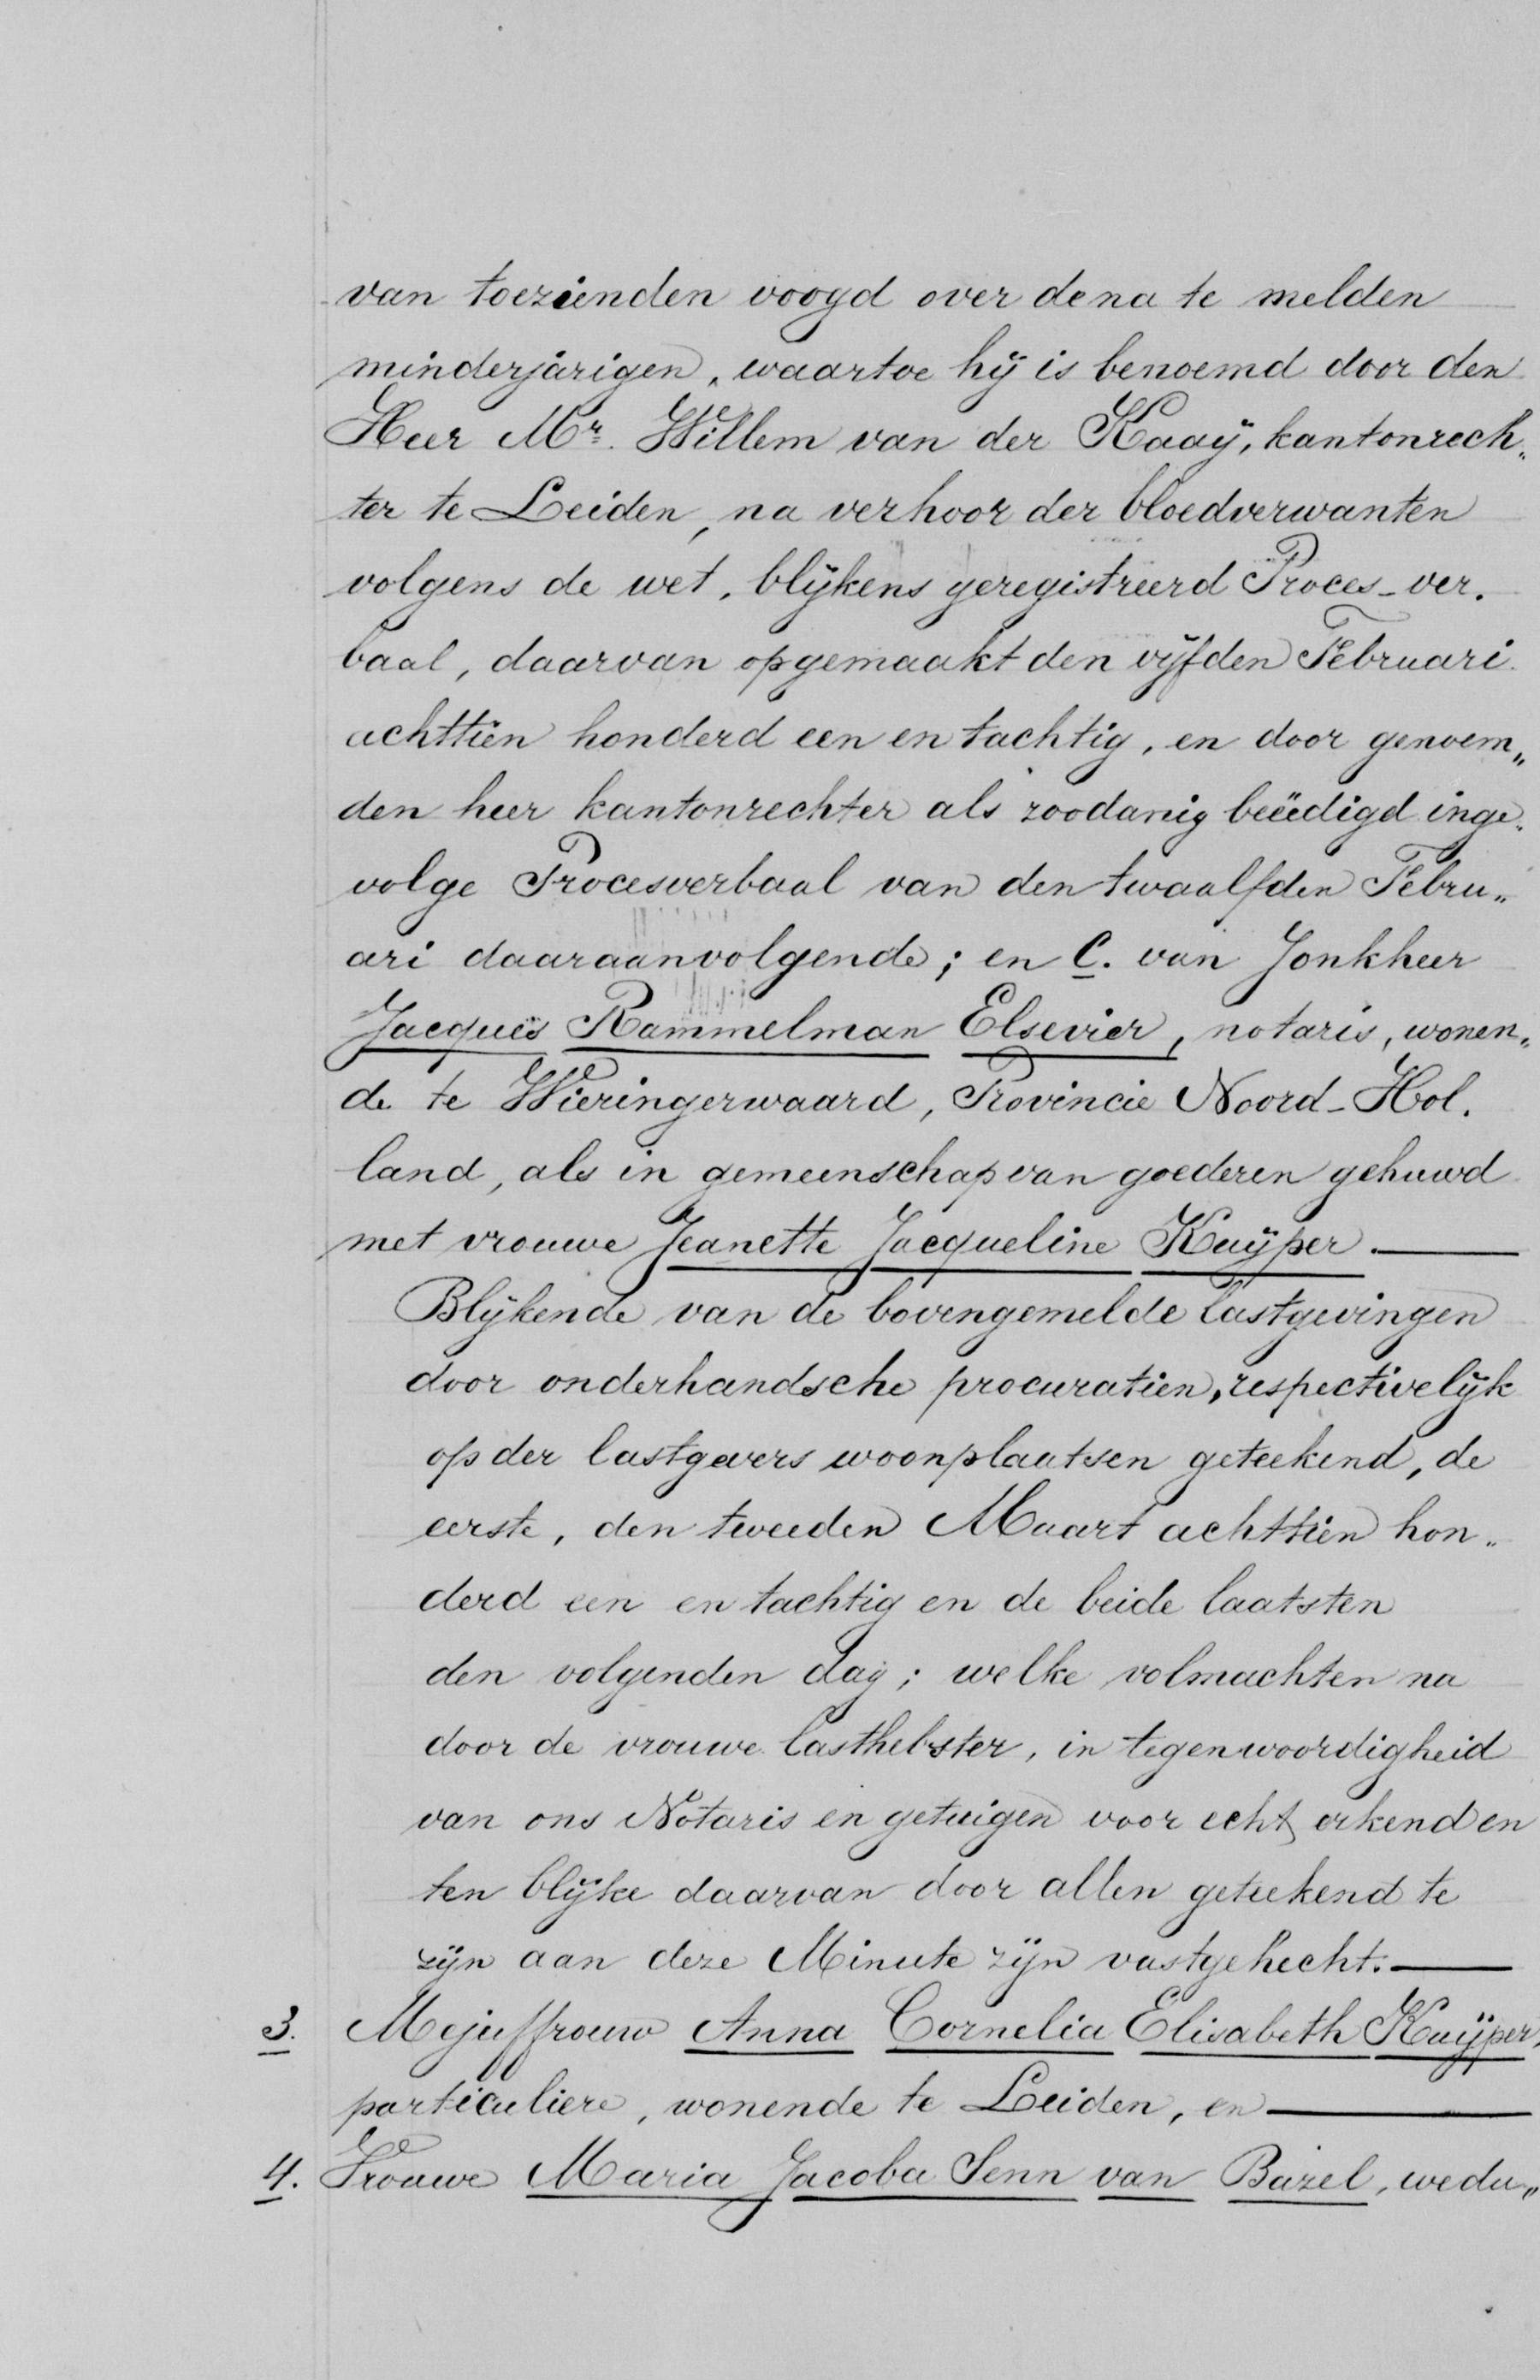 van toezienden voogd over de na te melden
minderjarigen, waartoe hij is benoemd door den
Heer Mr. Willem van der Kaaÿ, kantonrech„
ter te Leiden, na verhoor der bloedverwanten
volgens de wet, blijkens geregistreerd Proces-ver.
baal, daarvan opgemaakt den vijfden Februari
achttien honderd een en tachtig, en door genoem„
den heer kantonrechter als zoodanig beëedigd inge„
volge Procesverbaal van den twaalfden Febru„
ari daaraanvolgende; en C. van Jonkheer
Jacques Rammelman Elsevier, notaris, wonen„
de te Wieringerwaard, Provincie Noord-Hol.
land, als in gemeenschap van goederen gehuwd
met vrouwe Jeanette Jacqueline Kuÿper.
Blijkende van de bovengemelde lastgevingen
door onderhandsche procuratien, respectivelijk
op der lastgevers woonplaatsen geteekend, de
eerste, den tweeden Maart achttien hon„
derd een en tachtig en de beide laatsten
den volgenden dag; welke volmachten na
door de vrouwe lasthebster, in tegenwoordigheid
van ons Notaris en getuigen voor echt erkend en
ten blijke daarvan door allen geteekend te
zijn aan deze Minute zijn vastgehecht.
3. Mejuffrouw Anna Cornelia Elisabeth Kuÿper,
particuliere, wonende te Leiden, en
4. Vrouwe Maria Jacoba Senn van Bazel, wedu„